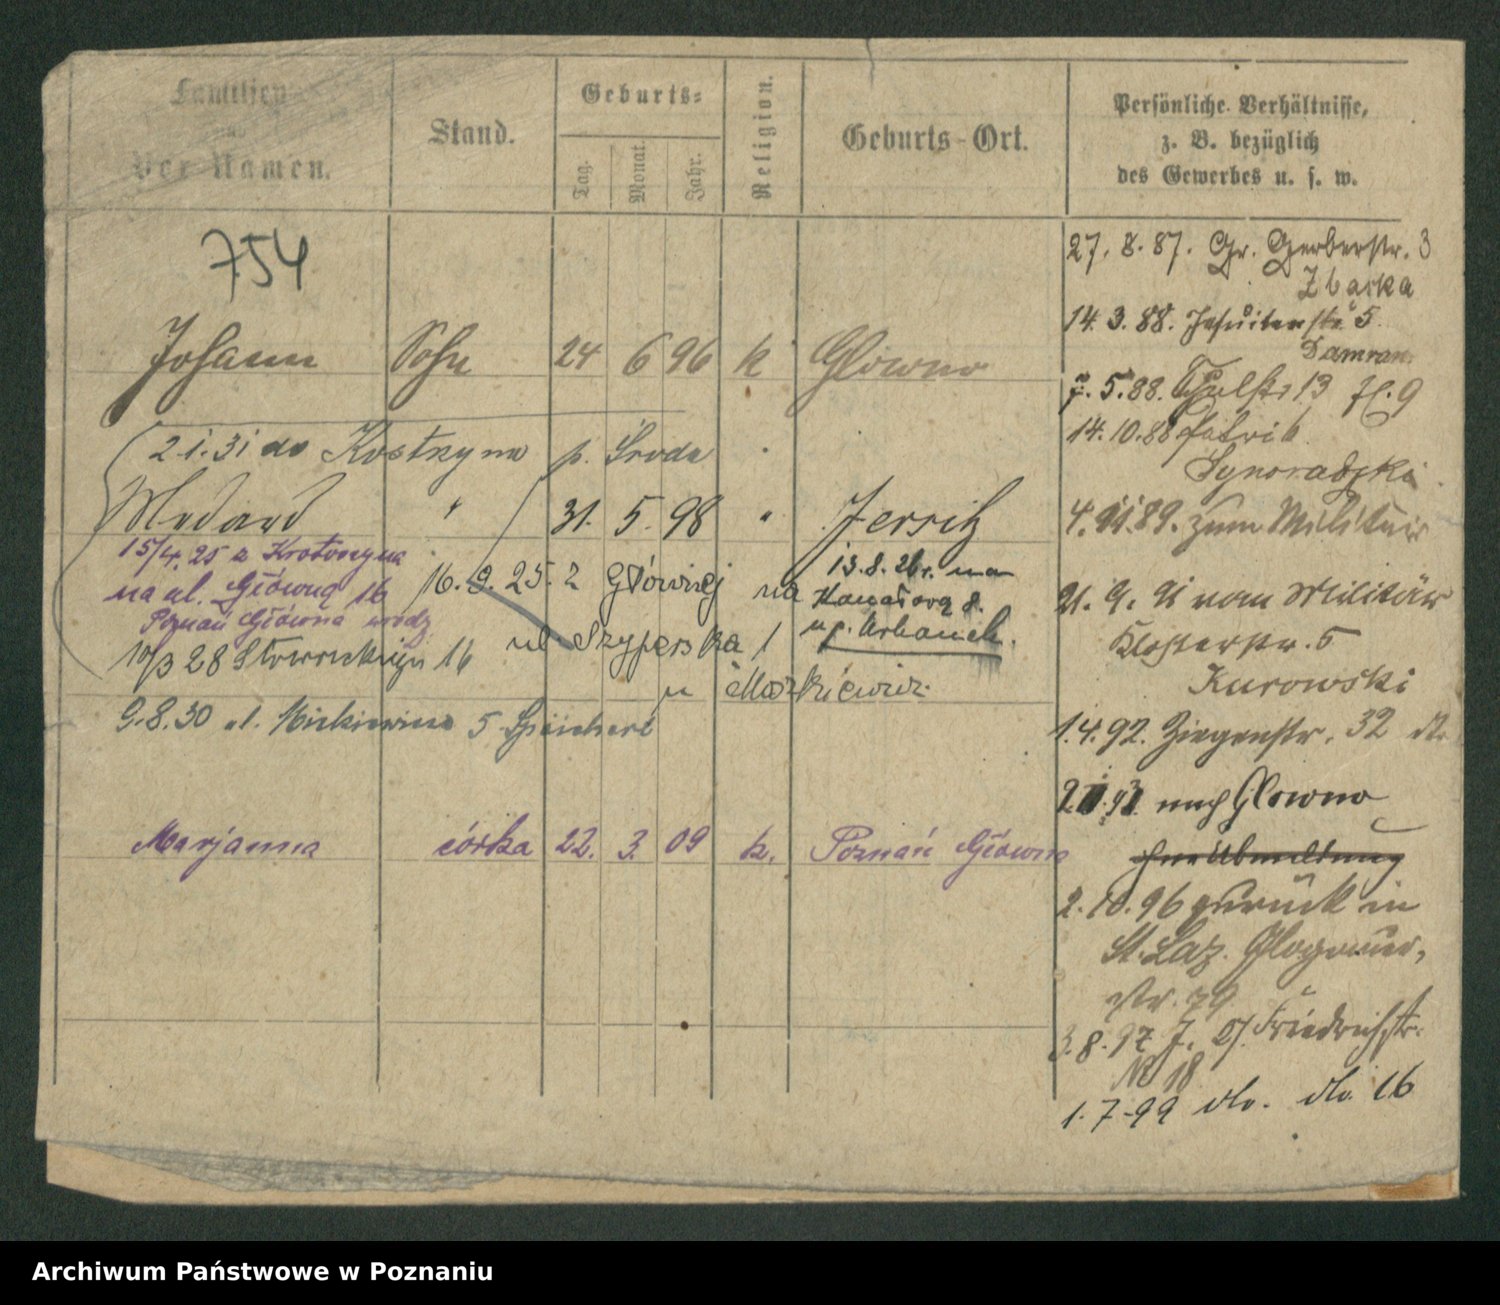 Familien
und
Vor Namen.
Stand.
Geburts=
Tag.
Monat.
Jahr.
Religion.
Geburts-Ort.
Persönliche Verhältnisse,
z. B. bezüglich
des Gewerbes u. s. w.
754
Johann Sohn 24 6 96 k Glowno
2.1.31 do Kostrzyna p. Środa
Medard " 31. 5. 98 " Jersitz
15/4.25 z Krotoszyna
na ul. Główną 16
Poznań Główna
16.9.25. z Głównej na
ul Szyperska 1
13.8.26r. na
Kanałową 8.
u p. Urbanek.
10/3 28 16
u Maćkiewicz
9.8.30 ul. Mickiewicza 5
Marjanna córka 22. 3. 09 k. Poznań Główna
27. 8. 87. Gr. Gerberstr. 3
Zbaska
14. 3. 88. Jesuitenstr 5.
Damran
7. 5. 88. 13 fl. 9
14. 10. 88
Synoradzki
4. 11. 89. zum Militair
21. 9. 91 vom Militär
Klosterstr. 5
Kurowski
1. 4. 92. Ziegenstr. 32
nach Glowno
2. 10. 96 zurück in
St. Laz. Glogauer-
str. 79
3. 8. 97 J. Friedrichstr.
No 18
1. 7. 99 do. do. 16
Archiwum Państwowe w Poznaniu